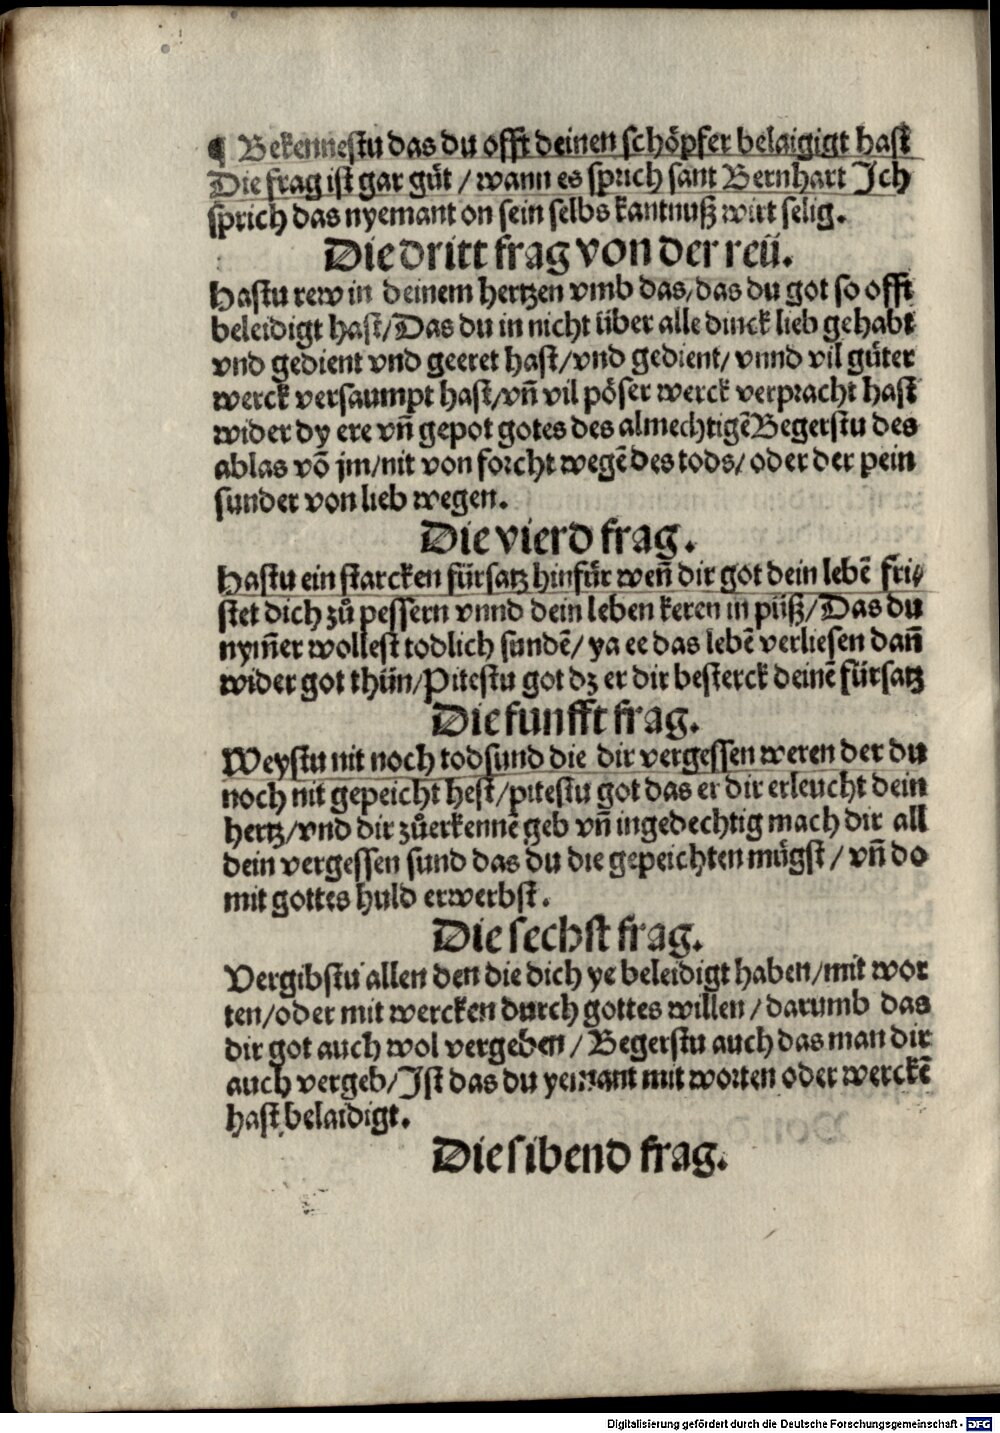 ¶ Bekennestu das du offt deinen schöpfer belaigigt hast
Die frag ist gar gůt / wann es sprich sant Bernhart Ich
sprich das nyemant on sein selbs kantnuß wirt selig.
Die dritt frag von der reü.
Hastu rew in deinem hertzen vmb das/das du got so offt
beleidigt hast/Das du in nicht über alle dinck lieb gehabt
vnd gedient vnd geeret hast/vnd gedient/ vnnd vil gůter
werck versaumpt hast/vn̄ vil pöser werck verpracht hast
wider dy ere vn̄ gepot gotes des almechtigē Begerstu des
ablas vō jm/nit von forcht wegē des tods/ oder der pein
sunder von lieb wegen.
Die vierd frag.
Hastu ein starcken fürsatz hinfür wen̄ dir got dein lebē fri⸗
stet dich zů pessern vnnd dein leben keren in püß/Das du
nym̄er wollest todlich sundē/ ya ee das lebē verliesen dan̄
wider got thün/Pitestu got dz er dir besterck deinē fürsatz
Die funfft frag.
Weystu nit noch todsund die dir vergessen weren der du
noch nit gepeicht hest/pitestu got das er dir erleucht dein
hertz/vnd dir zůerkennē geb vn̄ ingedechtig mach dir all
dein vergessen sund das du die gepeichten mügst / vn̄ do
mit gottes huld erwerbst.
Die sechst frag.
Vergibstu allen den die dich ye beleidigt haben/mit wor
ten/oder mit wercken durch gottes willen / darumb das
dir got auch wol vergeben / Begerstu auch das man dir
auch vergeb/Ist das du yemant mit worten oder werckē
hast belaidigt.
Die sibend frag.
Digitalisierung gefördert durch die Deutsche Forschungsgemeinschaft - DFG